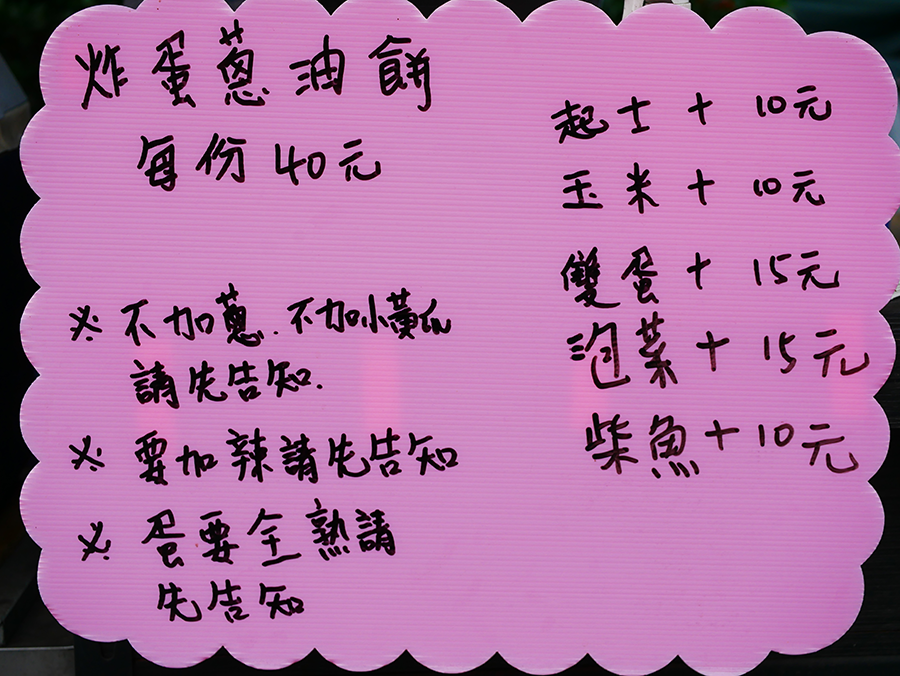 炸蛋蔥油餅
每份40元
※不加蔥.不加小黃瓜
請先告知.
※要加辣請先告知
※蛋要全熟請
先告知
起士+10元
玉米+10元
雙蛋+15元
泡菜+15元
柴魚+10元